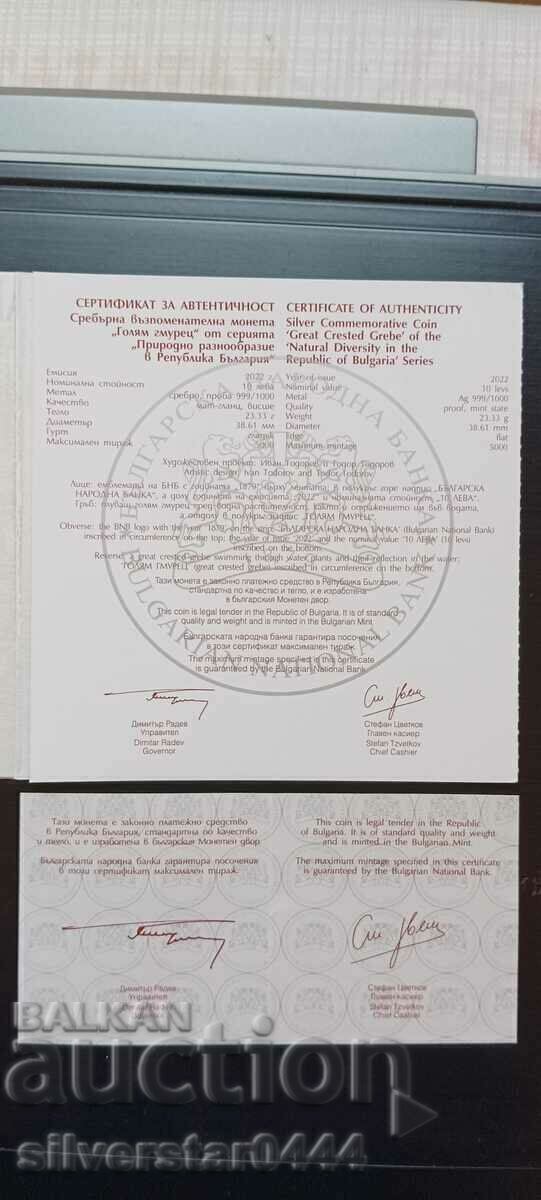 СЕРТИФИКАТ ЗА АВТЕНТИЧНОСТ
Сребърна възпоменателна монета
„Голям гмурец“ от серията
„Природно разнообразие
в Република България“
CERTIFICATE OF AUTHENTICITY
Silver Commemorative Coin
‘Great Crested Grebe’ of the
‘Natural Diversity in the
Republic of Bulgaria’ Series
Емисия 2022 г.
Номинална стойност 10 лева
Метал сребро, проба 999/1000
Качество мат-гланц, висше
Тегло 23.33 г
Диаметър 38.61 мм
Гурт гладък
Максимален тираж 5000
Year of issue 2022
Nominal value 10 levs
Metal Ag 999/1000
Quality proof, mint state
Weight 23.33 g
Diameter 38.61 mm
Edge flat
Maximum mintage 5000
Художествен проект: Иван Тодоров и Тодор Тодоров
Artistic design: Ivan Todorov and Todor Todorov
Лице: емблемата на БНБ с годината „1879“ върху лентата; в полукръг горе надпис „БЪЛГАРСКА
НАРОДНА БАНКА“, а долу годината на емисията „2022“ и номиналната стойност „10 ЛЕВА“.
Гръб: плуващ голям гмурец сред водна растителност, както и отражението им във водата,
а отдолу в полукръг надпис „ГОЛЯМ ГМУРЕЦ“.
Obverse: the BNB logo with the year ‘1879’ on the stripe, ‘БЪЛГАРСКА НАРОДНА БАНКА’ (Bulgarian National Bank)
inscribed in circumference on the top; the year of issue ‘2022’ and the nominal value ‘10 ЛЕВА’ (10 levs)
inscribed on the bottom.
Reverse: a great crested grebe swimming through water plants and their reflection in the water;
‘ГОЛЯМ ГМУРЕЦ’ (great crested grebe) inscribed in circumference on the bottom.
Тази монета е законно платежно средство в Република България,
стандартна по качество и тегло, и е изработена
в българския Монетен двор.
This coin is legal tender in the Republic of Bulgaria. It is of standard
quality and weight and is minted in the Bulgarian Mint.
Българската народна банка гарантира посочения
в този сертификат максимален тираж.
The maximum mintage specified in this certificate
is guaranteed by the Bulgarian National Bank.
БЪЛГАРСКА НАРОДНА БАНКА
BULGARIAN NATIONAL BANK
Димитър Радев
Управител
Dimitar Radev
Governor
Стефан Цветков
Главен касиер
Stefan Tzvetkov
Chief Cashier
Тази монета е законно платежно средство
в Република България, стандартна по качество
и тегло, и е изработена в българския Монетен двор.
Българската народна банка гарантира посочения
в този сертификат максимален тираж.
This coin is legal tender in the Republic
of Bulgaria. It is of standard quality and weight
and is minted in the Bulgarian Mint.
The maximum mintage specified in this certificate
is guaranteed by the Bulgarian National Bank.
Димитър Радев
Управител
Dimitar Radev
Governor
Стефан Цветков
Главен касиер
Stefan Tzvetkov
Chief Cashier
BALKAN
auction
silverstar0444